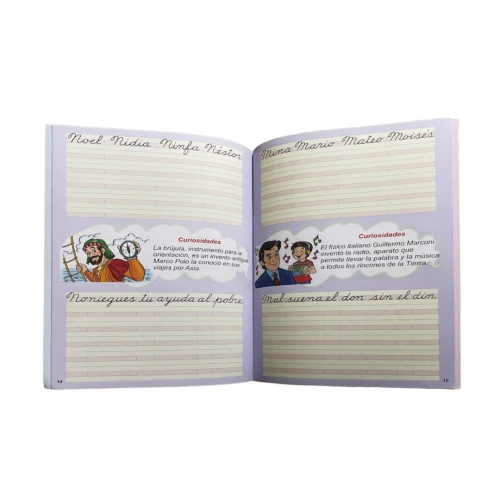 Noel Nidia Ninfa Néstor
Curiosidades
La brújula, instrumento para la
orientación, es un invento antiguo
Marco Polo la conoció en sus
viajes por Asia.
No niegues tu ayuda al pobre
14
Mina Mario Mateo Moisés
Curiosidades
El físico italiano Guillermo Marconi
inventó la radio, aparato que
permite llevar la palabra y la música
a todos los rincones de la Tierra.
Mal suena el don sin el din